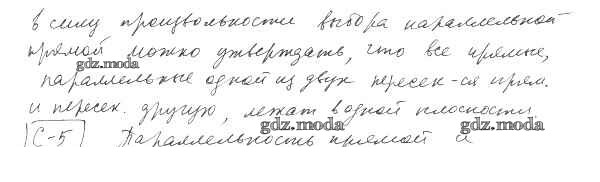 В силу произвольности выбора параллельной
прямой можно утверждать, что все прямые,
gdz.moda
параллельные одной из двух пересек-ся прям.
и пересек. другую, лежат в одной плоскости.
gdz.moda gdz.moda
С-5 Параллельность прямой и
gdz.moda